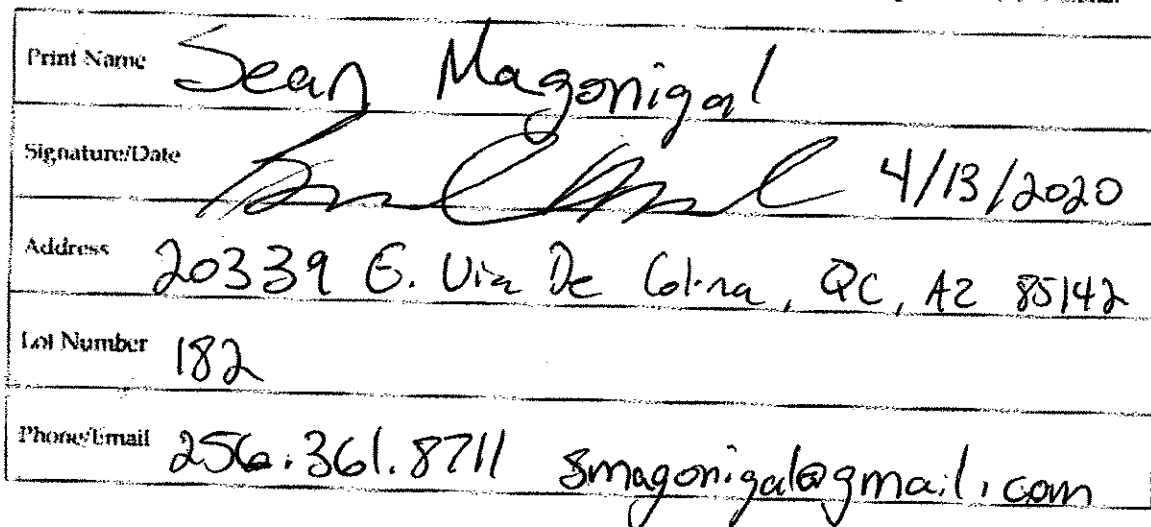 Print Name Sean Magonigal
Signature/Date 4/13/2020
Address 20339 E. Via De Colina, QC, AZ 85142
Lot Number 182
Phone/Email 256.361.8711 smagonigal@gmail.com